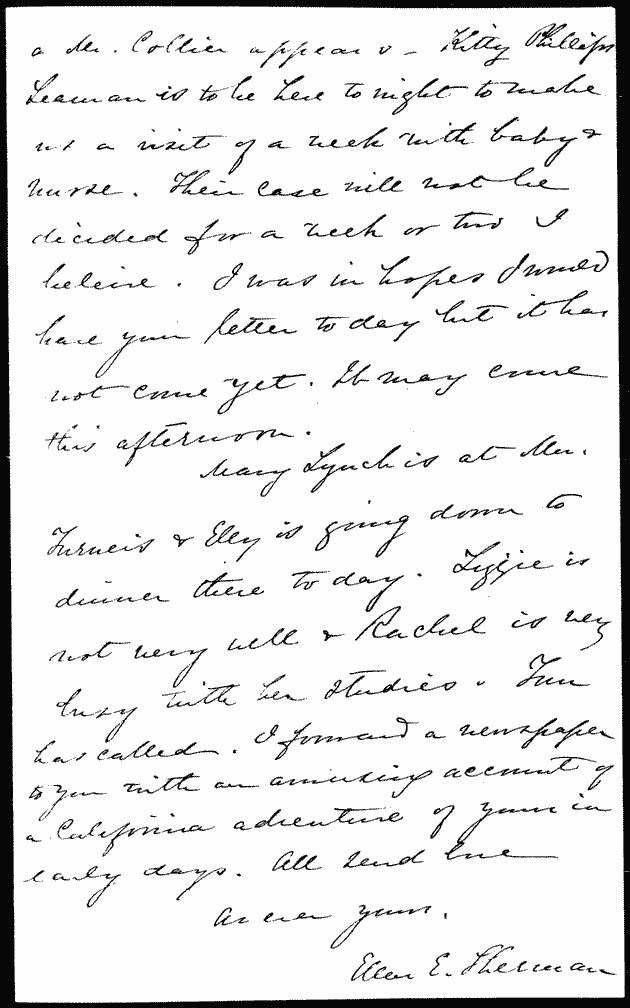 a Mr. Collier appears - Kitty Phillips
Leaman is to be here to night to make
us a visit of a week with baby &
nurse. Their case will not be
decided for a week or two I
believe. I was in hopes I would
have your letter to day but it has
not come yet. It may come
this afternoon.
Mary Lynch is at Mrs.
Turner's & Elly is going down to
dinner there to day. Lizzie is
not very well & Rachel is very
busy with her studies.
has called. I forward a newspaper
to you with an amusing account of
a California adventure of yours in
early days. All send love
As ever yours,
Ellen E. Sherman